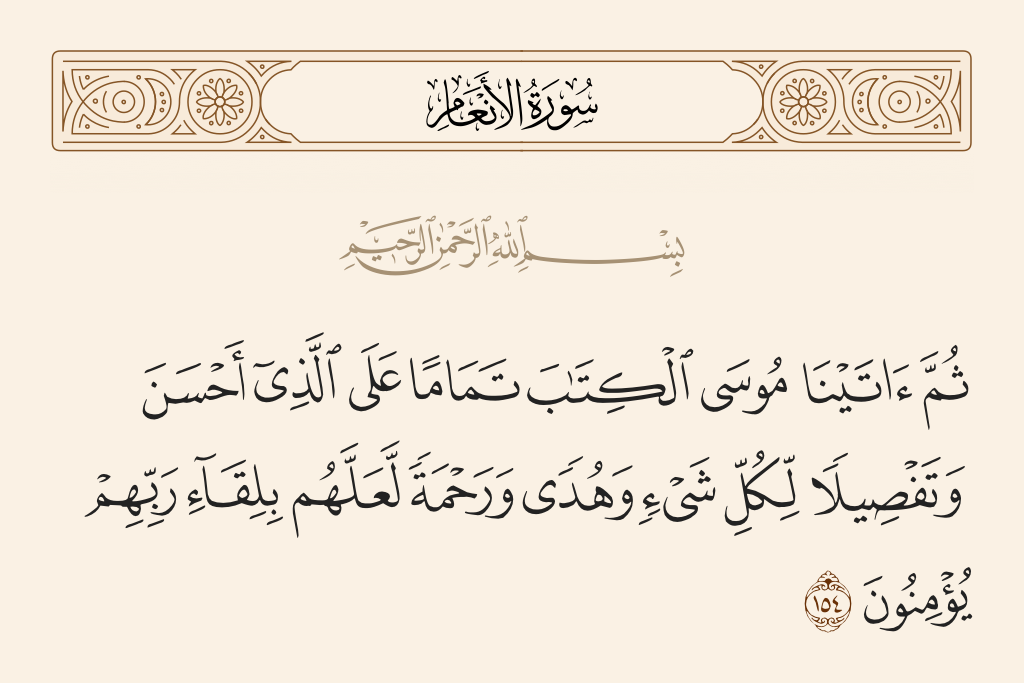 سُورَةُ الأَنْعَامِ
بِسْمِ ٱللَّهِ ٱلرَّحْمَٰنِ ٱلرَّحِيمِ
ثُمَّ ءَاتَيْنَا مُوسَى ٱلْكِتَٰبَ تَمَامًا عَلَى ٱلَّذِىٓ أَحْسَنَ
وَتَفْصِيلًا لِّكُلِّ شَىْءٍ وَهُدًى وَرَحْمَةً لَّعَلَّهُم بِلِقَآءِ رَبِّهِمْ
يُؤْمِنُونَ ١٥٤